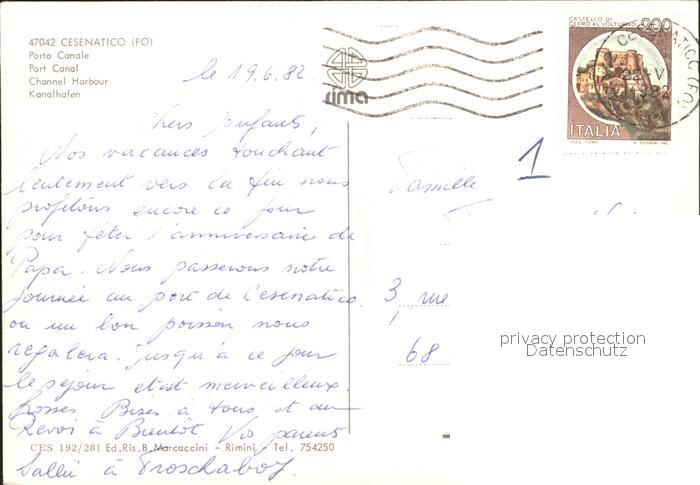 47042 CESENATICO (FO)
Porto Canale
Port Canal
Channel Harbour
Kanalhafen
le 19.6.82
Chers Enfants,
Nos vacances touchant
lentement vers la fin nous
profitons encore ce jour
pour fêter l'anniversaire de
Papa. Nous passerons notre
journée au port de Cesenatico
ou un bon poisson nous
regalera. Jusqu'à ce jour
le sejour etait merveilleux
Grosses Bises à tous et au
Revoi à Bientôt Vos parents
CES 192/281 Ed. Ris. B. Marcaccini - Rimini - Tel. 754250
Sallü à Froschaboj.
rima
CASTELLO DI
CERRO AL VOLTURNO 200
ITALIA
1
Famille
3, rue
68
privacy protection
Datenschutz